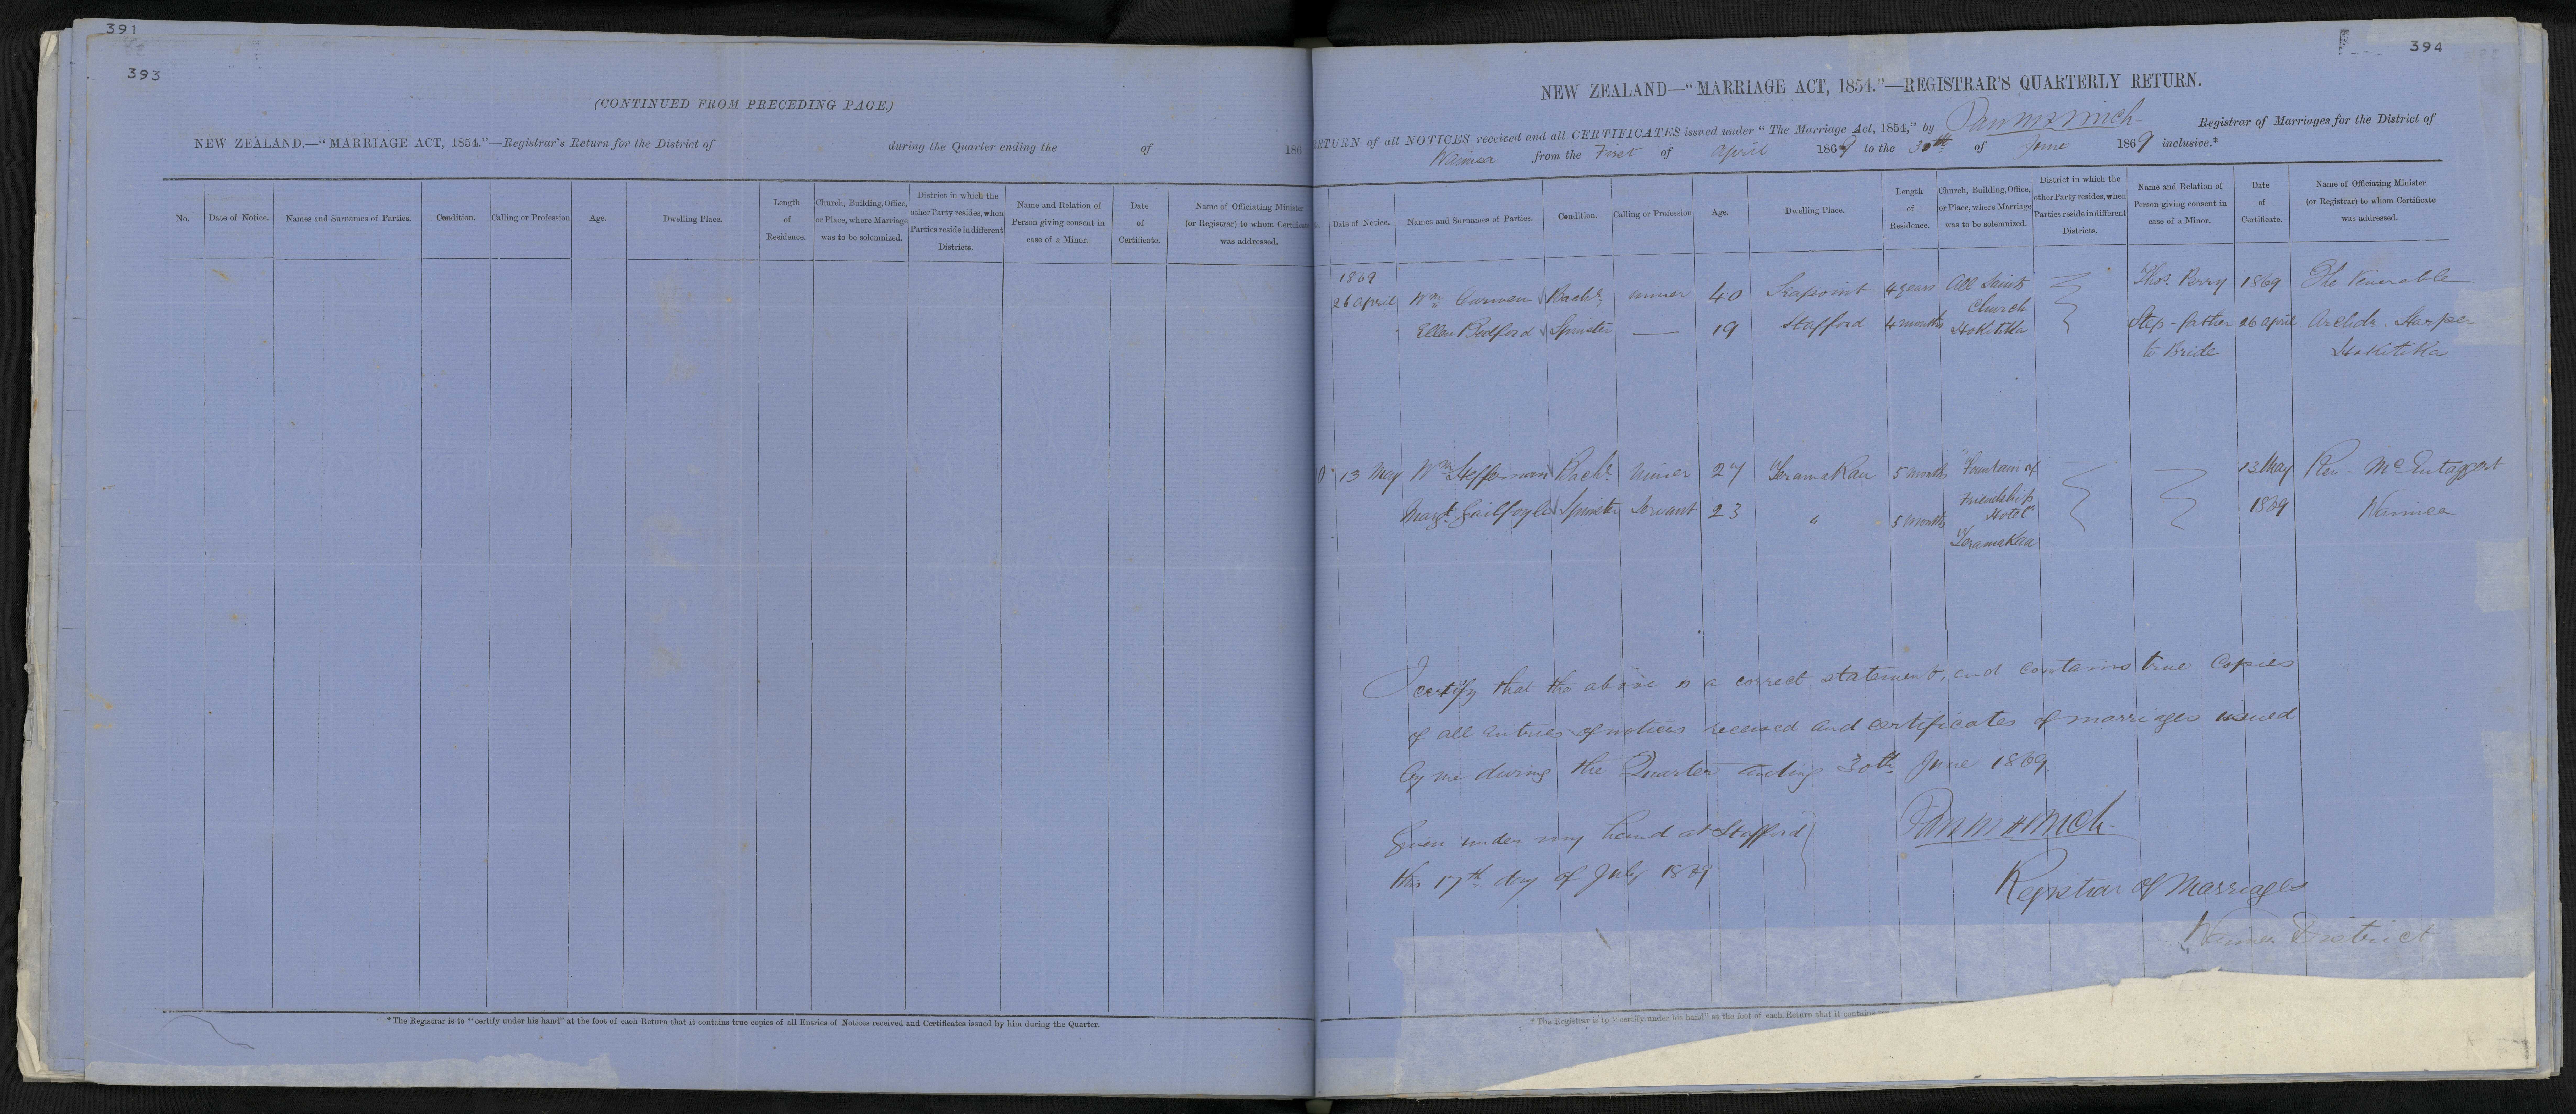 391
393
(CONTINUED FROM PRECEDING PAGE.)
NEW ZEALAND.—"MARRIAGE ACT, 1854."—Registrar's Return for the District of during the Quarter ending the of 186
No. Date of Notice. Names and Surnames of Parties. Condition. Calling or Profession Age. Dwelling Place. Length of Residence. Church, Building, Office, or Place, where Marriage was to be solemnized. District in which the other Party resides, when Parties reside in different Districts. Name and Relation of Person giving consent in case of a Minor. Date of Certificate. Name of Officiating Minister (or Registrar) to whom Certificate was addressed.
* The Registrar is to "certify under his hand" at the foot of each Return that it contains true copies of all Entries of Notices received and Certificates issued by him during the Quarter.
394
NEW ZEALAND—"MARRIAGE ACT, 1854."—REGISTRAR'S QUARTERLY RETURN.
RETURN of all NOTICES received and all CERTIFICATES issued under "The Marriage Act, 1854," by Registrar of Marriages for the District of
Waimea from the First of April 1869 to the 30th of June 1869 inclusive.*
Date of Notice. Names and Surnames of Parties. Condition. Calling or Profession Age. Dwelling Place. Length of Residence. Church, Building, Office, or Place, where Marriage was to be solemnized. District in which the other Party resides, when Parties reside in different Districts. Name and Relation of Person giving consent in case of a Minor. Date of Certificate. Name of Officiating Minister (or Registrar) to whom Certificate was addressed.
1869
26 April Wm Curwen Bachr miner 40 Seapoint 4 years All Saints Thos. Perry 1869 The Venerable
Church
Ellen Bedford Spinster — 19 Stafford 4 months Hokitika Step-father 26 April Archdn. Harper
to Bride Hokitika
13 May Wm Heffernan Bachr Miner 27 Teramakau 5 months "Fountain of 13 May Rev- McEntaggert
Friendship
Margt. Guilfoyle Spinster Servant 23 " 5 months Hotel" 1869 Waimea
Teramakau
I certify that the above is a correct statement, and contains true Copies
of all entries of notices received and certificates of marriages issued
by me during the Quarter ending 30th June 1869
Given under my hand at Stafford
this 17th day of July 1869
Registrar of Marriages
Waimea District
* The Registrar is to "certify under his hand" at the foot of each Return that it contains